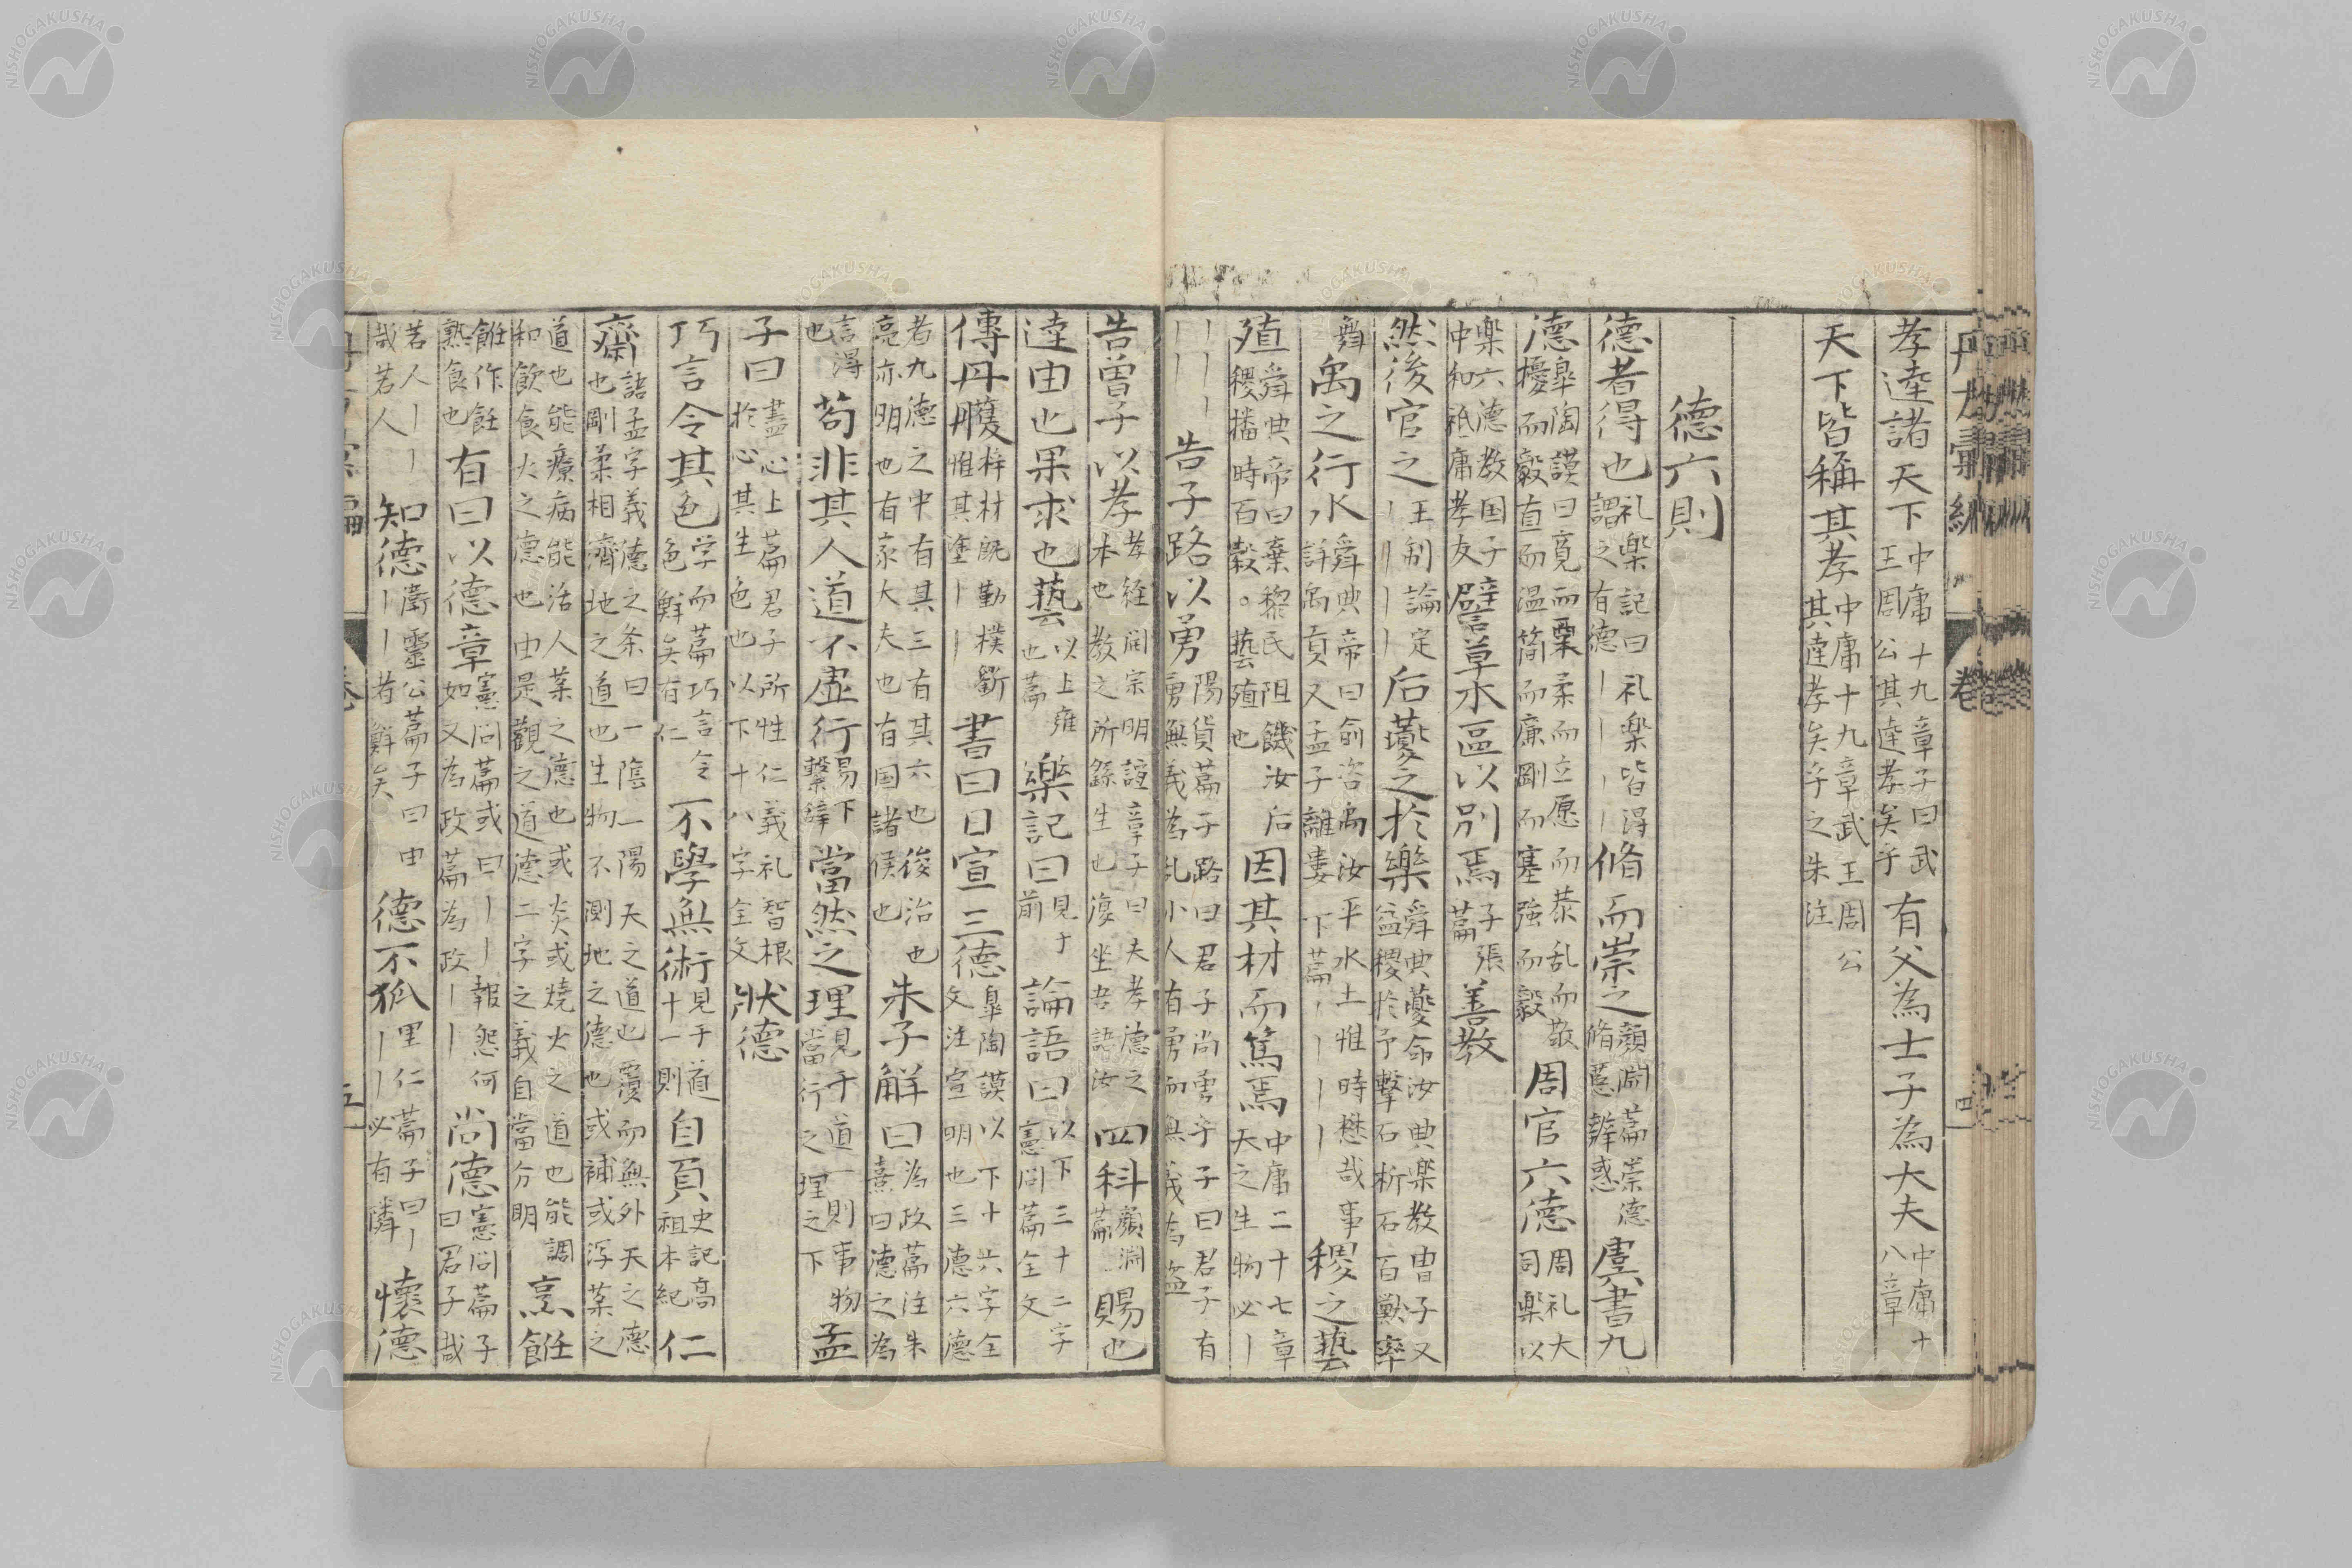 孝逵諸天下中庸十九章子曰武王周公其逵孝矣乎有父為士子為大夫中庸十八章
天下皆稱其孝中庸十九章武王周公其逵孝矣乎之朱註
德六則
德者得也礼樂記曰礼樂皆得謂之有德丨丨丨脩而崇之顏淵篇崇德脩慝辨惑虞書九
德皐陶謨曰寬而栗柔而立愿而恭乱而敬擾而毅直而温簡而廉剛而塞強而毅周官六德周礼大司樂以
樂六德教国子中和祗庸孝友譬草木區以別焉子張篇善教
然後官之王制論定丨丨丨丨后夔之於樂舜典夔命汝典樂教冑子又益稷於予擊石拊石百獸率
舞禹之行水舜典帝曰俞咨禹汝平水土惟時懋哉事詳禹貢又孟子離婁下篇丨丨丨丨稷之藝
殖舜典帝曰棄黎民阻饑汝后稷播時百穀。藝殖也因其材而篤焉中庸二十七章天之生物必丨
丨丨丨丨丨丨告子路以勇陽貨篇子路曰君子尚勇乎子曰君子有勇無義為乱小人有勇而無義為盗
告曽子以孝孝経開宗明誼章子曰夫孝德之本也教之所繇生也復坐吾語汝四科顏淵篇賜也
逵由也果求也藝以上雍也篇樂記曰見于前論語曰以下三十二字憲問篇全文
傳丹雘梓材既勤樸斲惟其塗丨丨書曰日宣三德皐陶謨以下十六字全文注宣明也三德六德
者九德之中有其三有其六也俊治也亮亦明也有家大夫也有国諸侯也朱子解曰為政篇注朱熹曰德之為
言得也苟非其人道不虚行易下繋辞當然之理見于道一則事物當行之理之下孟
子曰盡心上篇君子所性仁義礼智根於心其生色也以下十八字全文狀德
巧言令其色学而篇巧言令色鮮矣有仁不學無術見于道十一則自頁史記高祖本紀仁
齋語孟字義德之条曰一陰一陽天之道也覆而無外天之德也剛柔相濟地之道也生物不測地之德也或補或浮薬之
道也能療病能活人薬之德也或炎或燒火之道也能調和飲食火之德也由是觀之道德二字之義自當分明烹飪
飪作飪熟食也有曰以德章憲問篇或曰丨丨報怨何如又為政篇為政丨丨尚德憲問篇子曰君子哉
若人丨丨哉若人知德衛靈公篇子曰由丨丨者鮮矣德不孤里仁篇子曰丨丨丨必有隣懷德